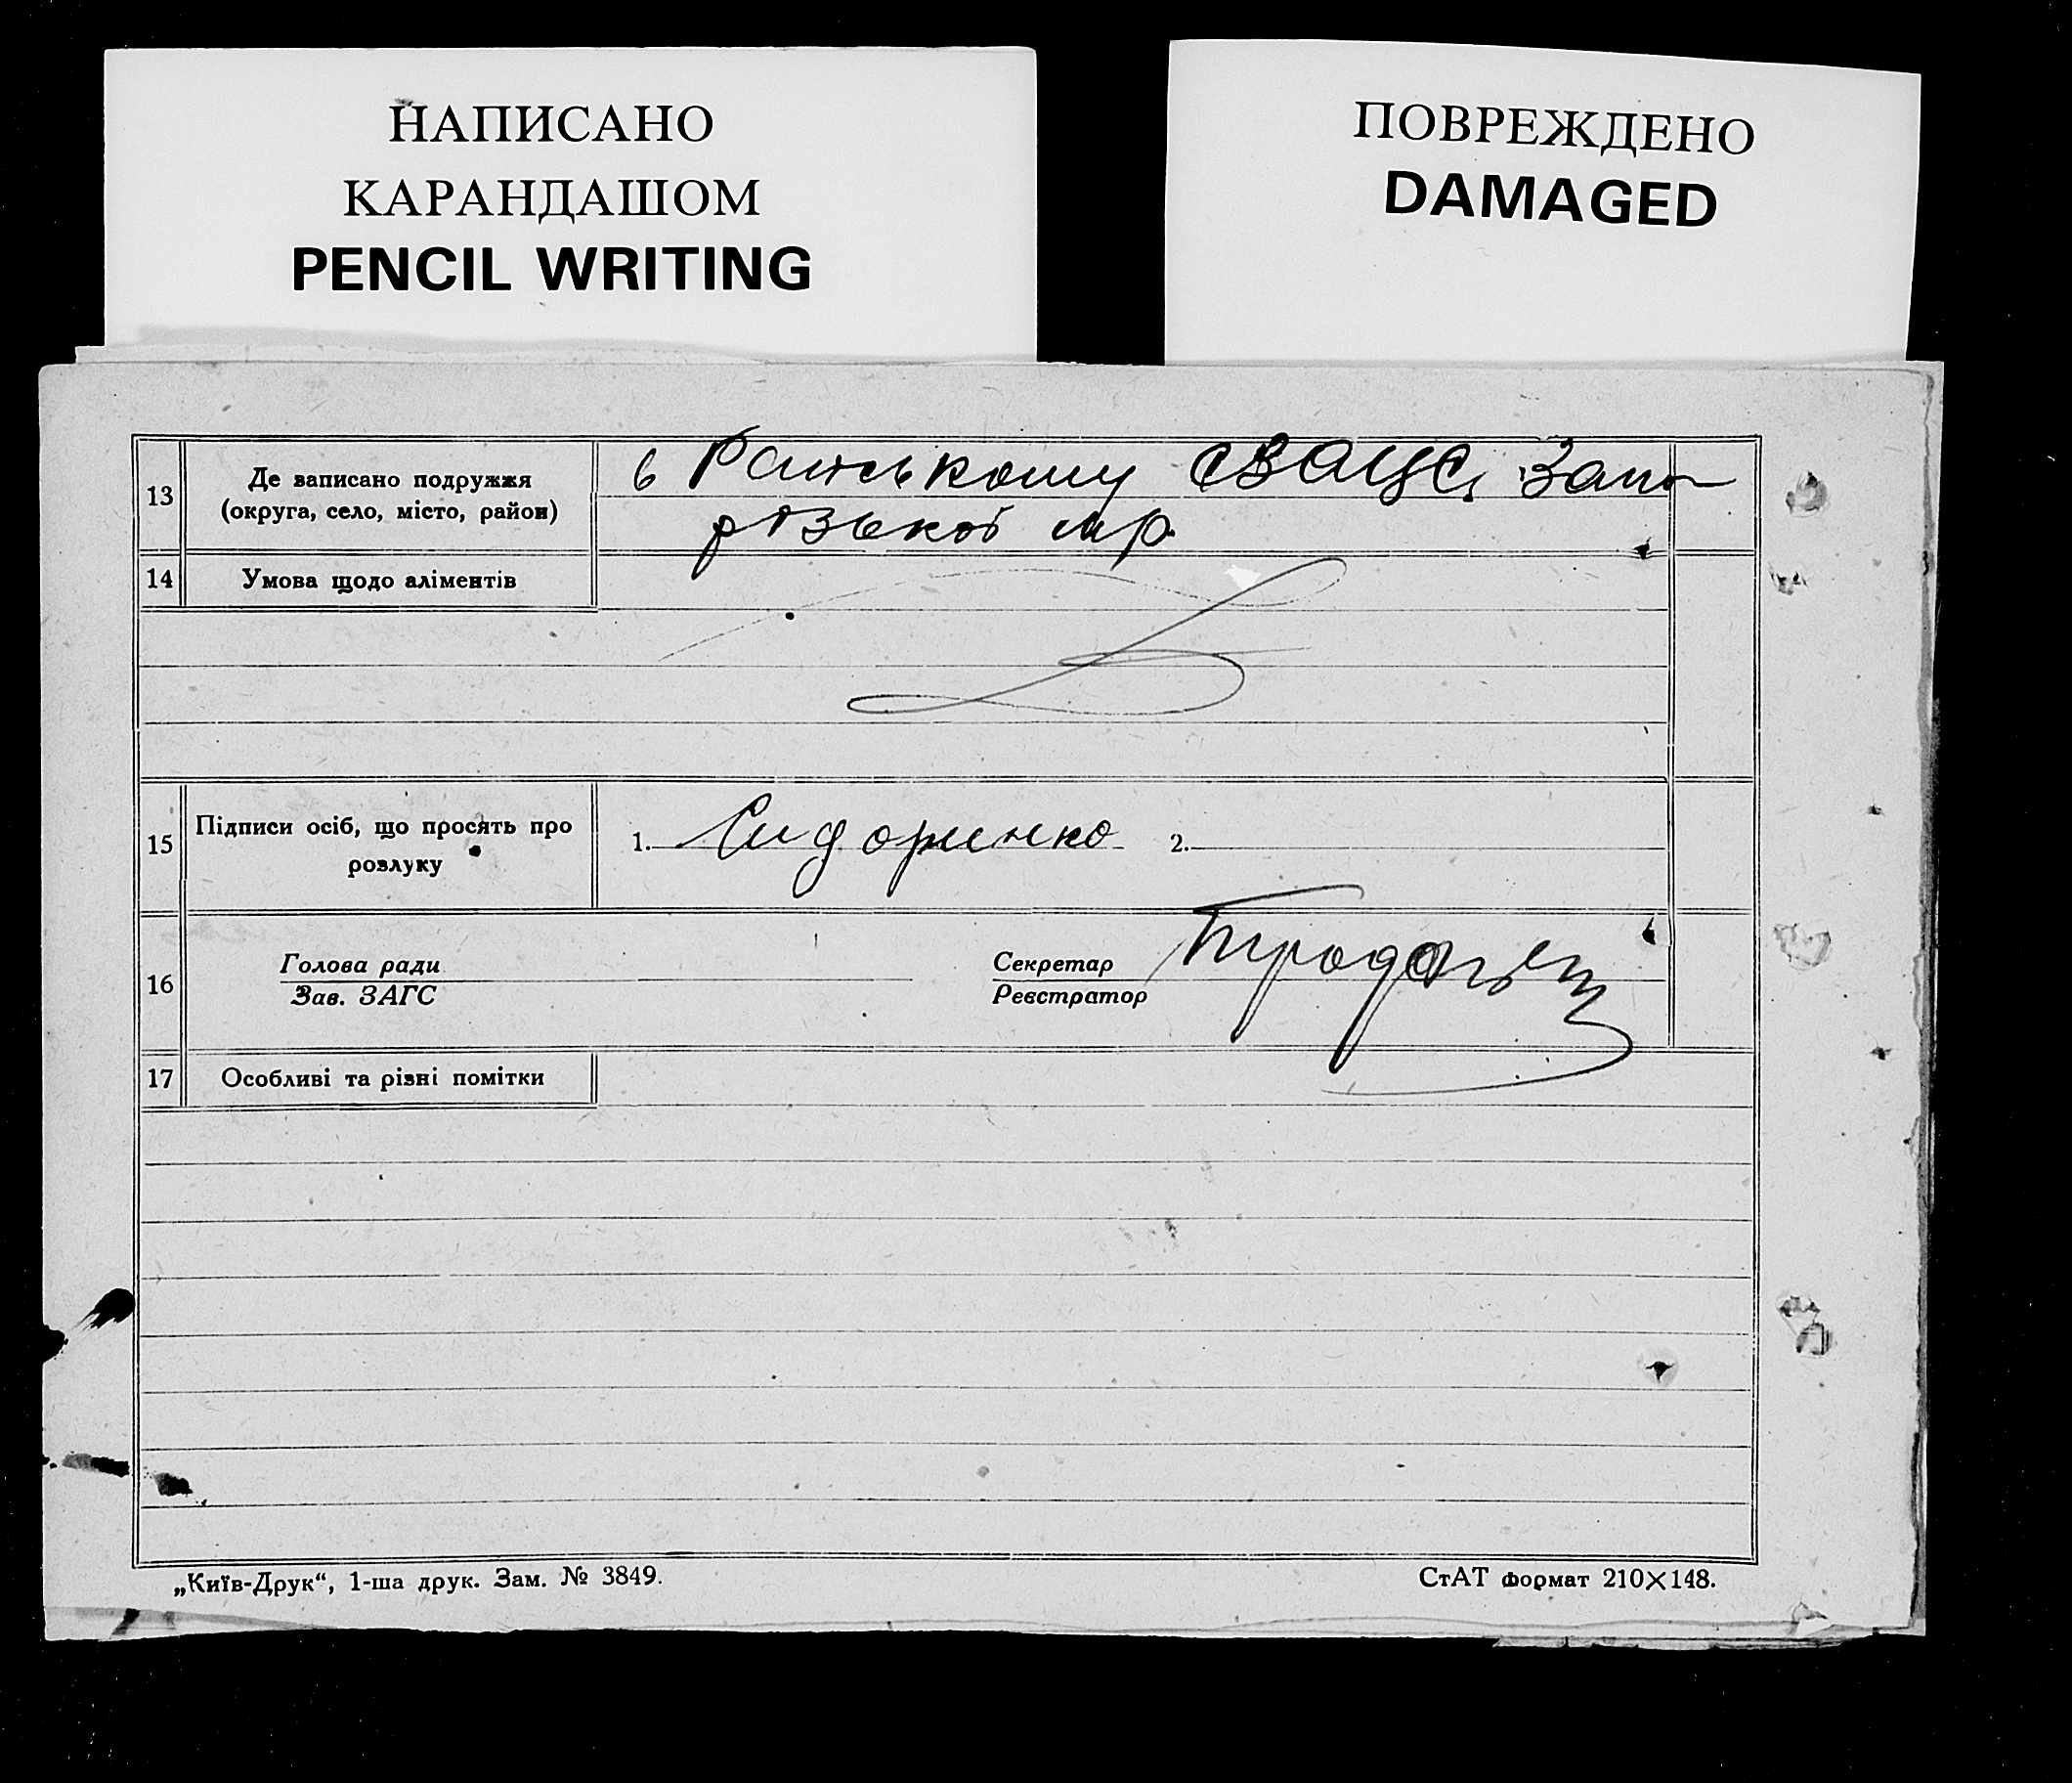 НАПИСАНО
КАРАНДАШОМ
PENCIL WRITING
ПОВРЕЖДЕНО
DAMAGED
13
Де записано подружжя
(округа, село, місто, район)
в
14
Умова щодо аліментів
15
Підписи осіб, що просять про
розлуку
1. Сидоринко 2.
16
Голова ради
Зав. ЗАГС
Секретар
Реєстратор
17
Особливі та різні помітки
„Київ-Друк“, 1-ша друк. Зам. № 3849.
СтАТ формат 210×148.